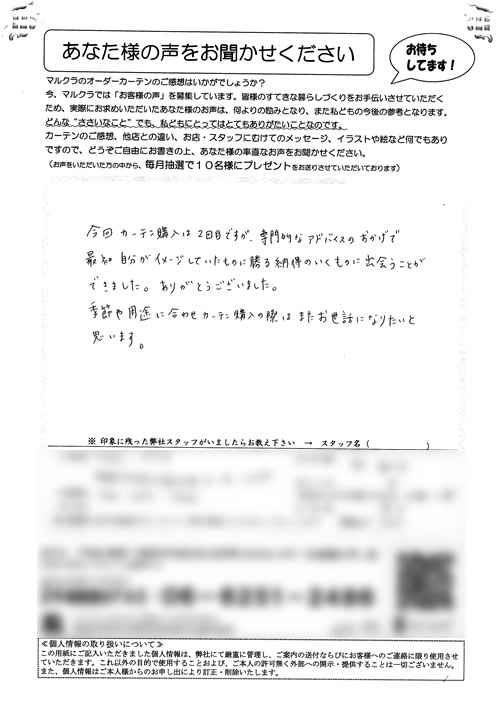 あなた様の声をお聞かせください
お待ち
してます!
マルクラのオーダーカーテンのご感想はいかがでしょうか?
今、マルクラでは「お客様の声」を募集しています。皆様のすてきな暮らしづくりをお手伝いさせていただく
ため、実際にお求めいただいたあなた様のお声は、何よりの励みとなり、また私どもの今後の参考となります。
どんな“ささいなこと”でも、私どもにとってはとてもありがたいことなのです。
カーテンのご感想、他店との違い、お店・スタッフにむけてのメッセージ、イラストや絵など何でもあり
ですので、どうぞご自由にお書きの上、あなた様の率直なお声をお聞かせください。
(お声をいただいた方の中から、毎月抽選で10名様にプレゼントをお送りさせていただいております)
今回カーテン購入は2回目ですが、専門的なアドバイスのおかげで
最初自分がイメージしていたものに勝る納得のいくものに出会うことが
できました。ありがとうございました。
季節や用途に合わせカーテン購入の際はまたお世話になりたいと
思います。
※ 印象に残った弊社スタッフがいましたらお教え下さい → スタッフ名 ( )
≪個人情報の取り扱いについて≫
この用紙にご記入いただきました個人情報は、弊社にて厳重に管理し、ご案内の送付ならびにお客様へのご連絡に限り使用させ
ていただきます。これ以外の目的で使用することおよび、ご本人の許可無く外部への開示・提供することは一切ございません。
また、個人情報はご本人様からのお申し出により訂正・削除いたします。